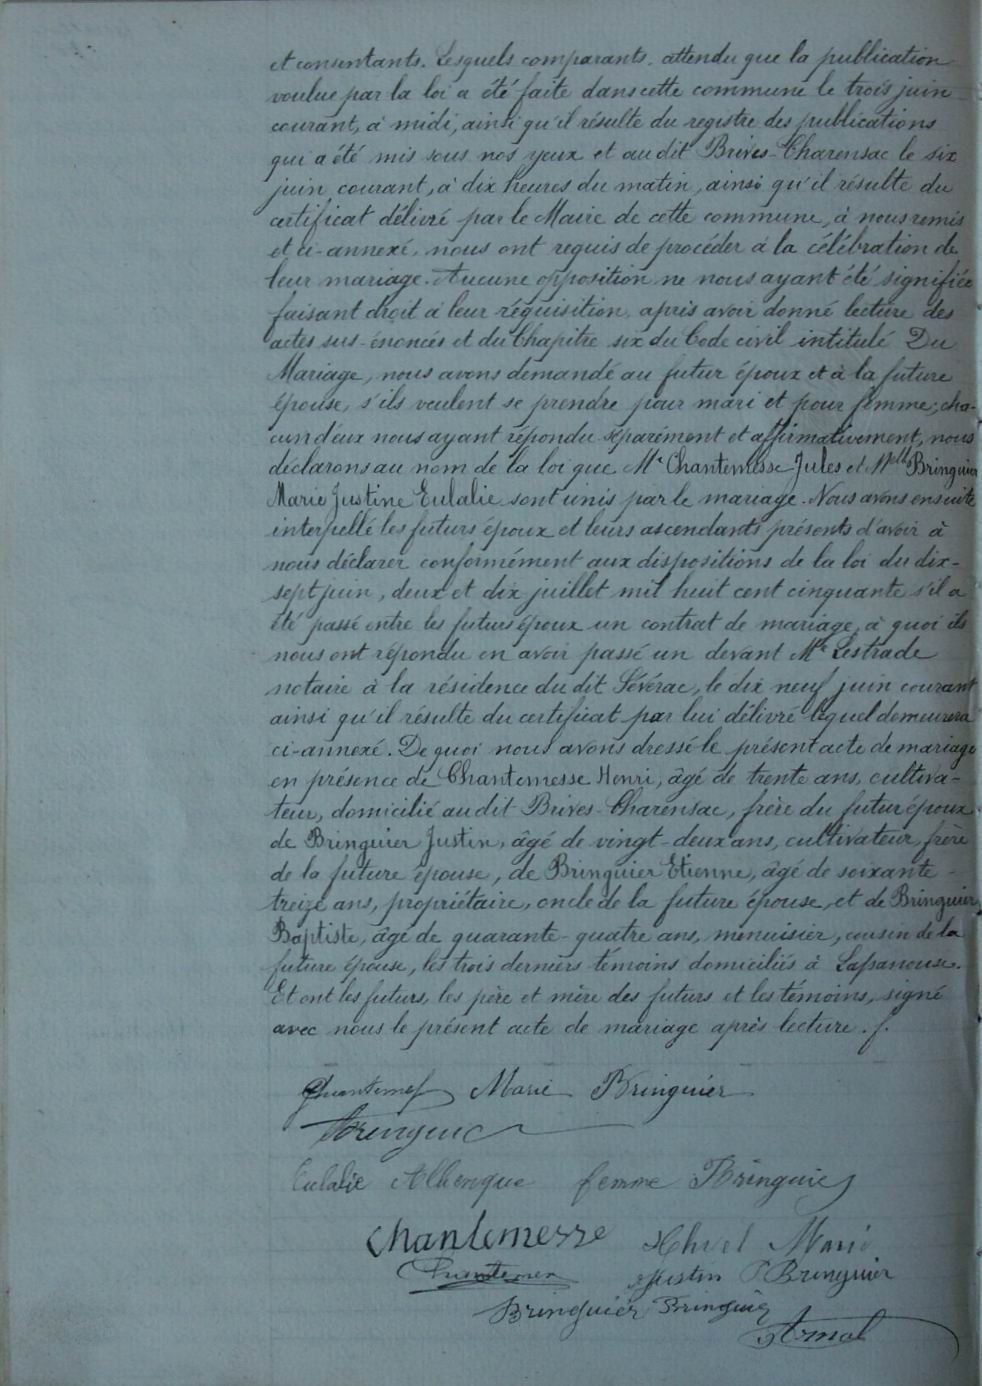 et consentants. Lesquels comparants, attendu que la publication
voulue par la loi a été faite dans cette commune le trois juin
courant, à midi, ainsi qu'il résulte du registre des publications
qui a été mis sous nos yeux et au dit Brives-Charensac le six
juin courant, à dix heures du matin, ainsi qu'il résulte du
certificat délivré par le Maire de cette commune, à nous remis
et ci-annexé, nous ont requis de procéder à la célébration de
leur mariage. Aucune opposition ne nous ayant été signifiée
faisant droit à leur réquisition, après avoir donné lecture des
actes sus-énoncés et du Chapitre six du Code civil intitulé Du
Mariage, nous avons demandé au futur époux et à la future
épouse, s'ils veulent se prendre pour mari et pour femme; cha-
cun d'eux nous ayant répondu séparément et affirmativement, nous
déclarons au nom de la loi que Mr Chantemesse Jules et Melle Bringuier
Marie Justine Eulalie sont unis par le mariage. Nous avons ensuite
interpellé les futurs époux et leurs ascendants présents d'avoir à
nous déclarer conformément aux dispositions de la loi du dix-
sept juin, deux et dix juillet mil huit cent cinquante s'il a
été passé entre les futurs époux un contrat de mariage, à quoi ils
nous ont répondu en avoir passé un devant Me Lestrade
notaire à la résidence du dit Séverac, le dix neuf juin courant
ainsi qu'il résulte du certificat par lui délivré lequel demeurera
ci-annexé. De quoi nous avons dressé le présent acte de mariage
en présence de Chantemesse Henri, âgé de trente ans, cultiva-
teur, domicilié au dit Brives-Charensac, frère du futur époux
de Bringuier Justin, âgé de vingt-deux ans, cultivateur, frère
de la future épouse, de Bringuier Etienne, âgé de soixante-
treize ans, propriétaire, oncle de la future épouse, et de Bringuier
Baptiste, âgé de quarante-quatre ans, menuisier, cousin de la
future épouse, les trois derniers témoins domiciliés à Lapanouse.
Et ont les futurs, les père et mère des futurs et les témoins, signé
avec nous le présent acte de mariage après lecture. /.
Marie Bringuier
Bringuier
Eulalie femme Bringuier
Chantemesse Marie
Justin Bringuier
Bringuier Bringuier
Arnal